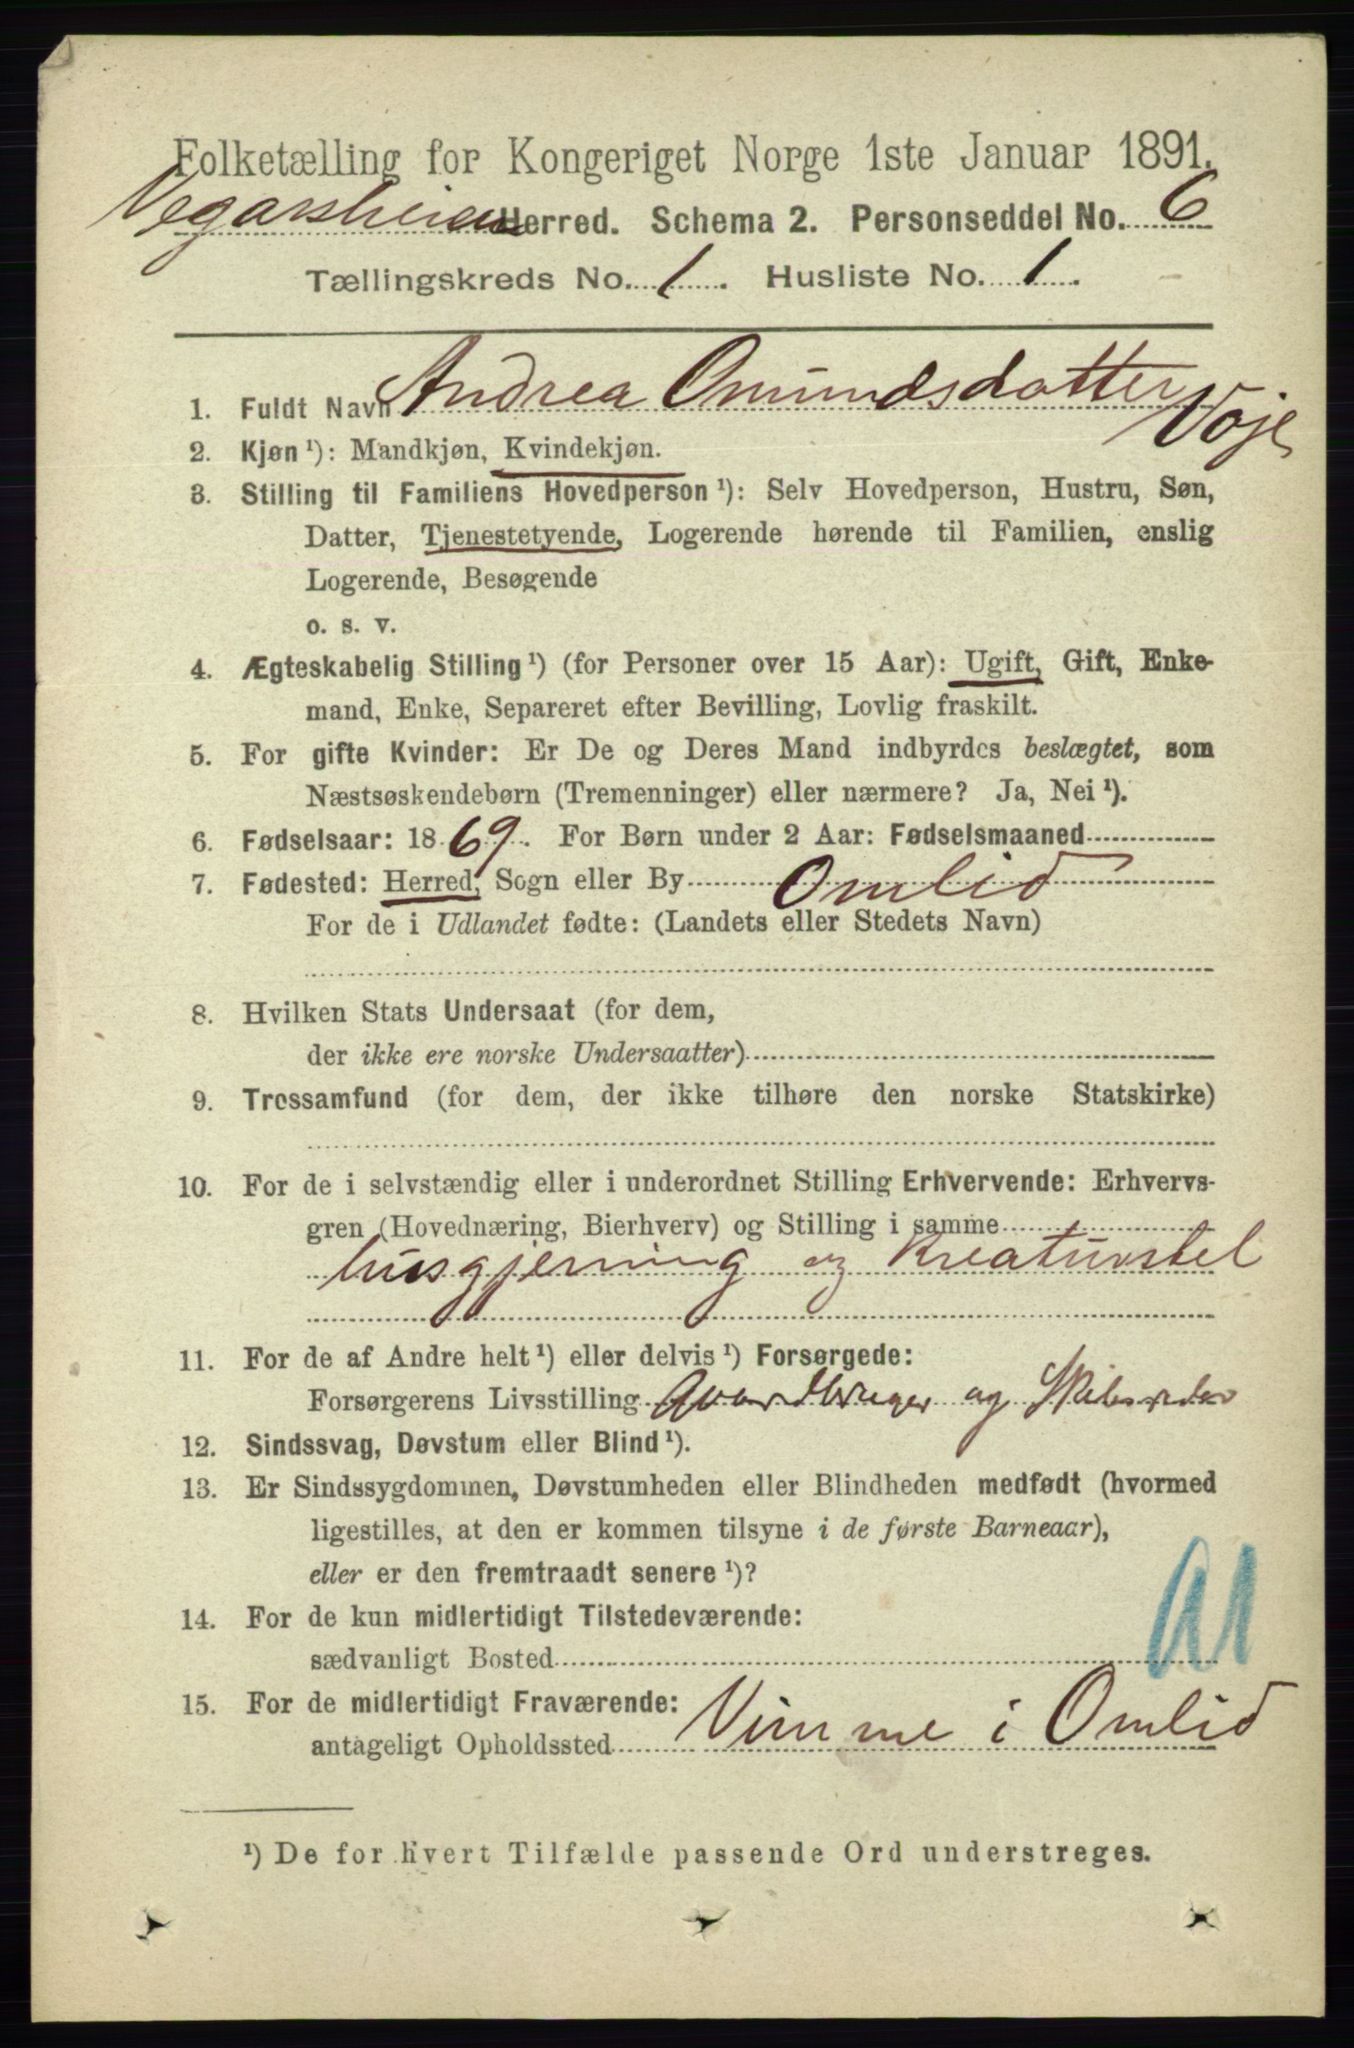 Folketælling for Kongeriget Norge 1ste Januar 1891.
Vegarsheien Herred. Schema 2. Personseddel No. 6
Tællingskreds No. 1. Husliste No. 1.
1. Fuldt Navn Andrea Omundsdatter
Voje
2. Kjøn ¹): Mandkjøn, Kvindekjøn.
3. Stilling til Familiens Hovedperson ¹): Selv Hovedperson, Hustru, Søn,
Datter, Tjenestetyende, Logerende hørende til Familien, enslig
Logerende, Besøgende
o. s. v.
4. Ægteskabelig Stilling ¹) (for Personer over 15 Aar): Ugift, Gift, Enke-
mand, Enke, Separeret efter Bevilling, Lovlig fraskilt.
5. For gifte Kvinder: Er De og Deres Mand indbyrdes beslægtet, som
Næstsøskendebørn (Tremenninger) eller nærmere? Ja, Nei ¹).
6. Fødselsaar: 1869. For Børn under 2 Aar: Fødselsmaaned
7. Fødested: Herred, Sogn eller By Omlid
For de i Udlandet fødte: (Landets eller Stedets Navn)
8. Hvilken Stats Undersaat (for dem,
der ikke ere norske Undersaatter)
9. Trossamfund (for dem, der ikke tilhøre den norske Statskirke)
10. For de i selvstændig eller i underordnet Stilling Erhvervende: Erhvervs-
gren (Hovednæring, Bierhverv) og Stilling i samme
husgjerning og Kreaturstel
11. For de af Andre helt ¹) eller delvis ¹) Forsørgede:
Forsørgerens Livsstilling Gaardbruger og
12. Sindssvag, Døvstum eller Blind ¹).
13. Er Sindssygdommen, Døvstumheden eller Blindheden medfødt (hvormed
ligestilles, at den er kommen tilsyne i de første Barneaar),
eller er den fremtraadt senere ¹)?
14. For de kun midlertidigt Tilstedeværende:
sædvanligt Bosted
15. For de midlertidigt Fraværende:
antageligt Opholdssted Vimme i Omlid
¹) De for hvert Tilfælde passende Ord understreges.